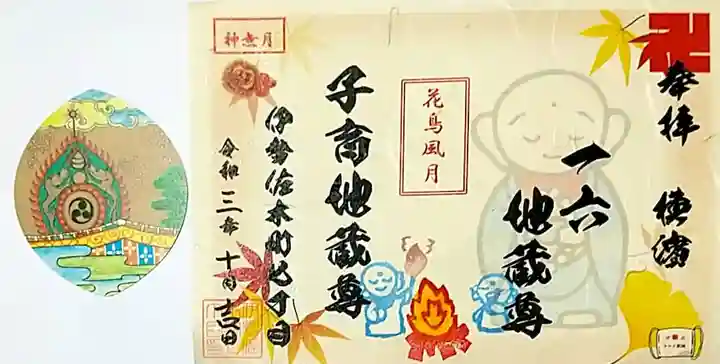 奉拝 横濱
一六
地蔵尊
花鳥風月
子育地蔵尊
伊勢佐木町七丁目
令和三年 十月吉日
神無月